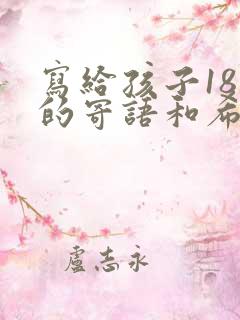 寫給孩子18
的寄語和希
盧志永